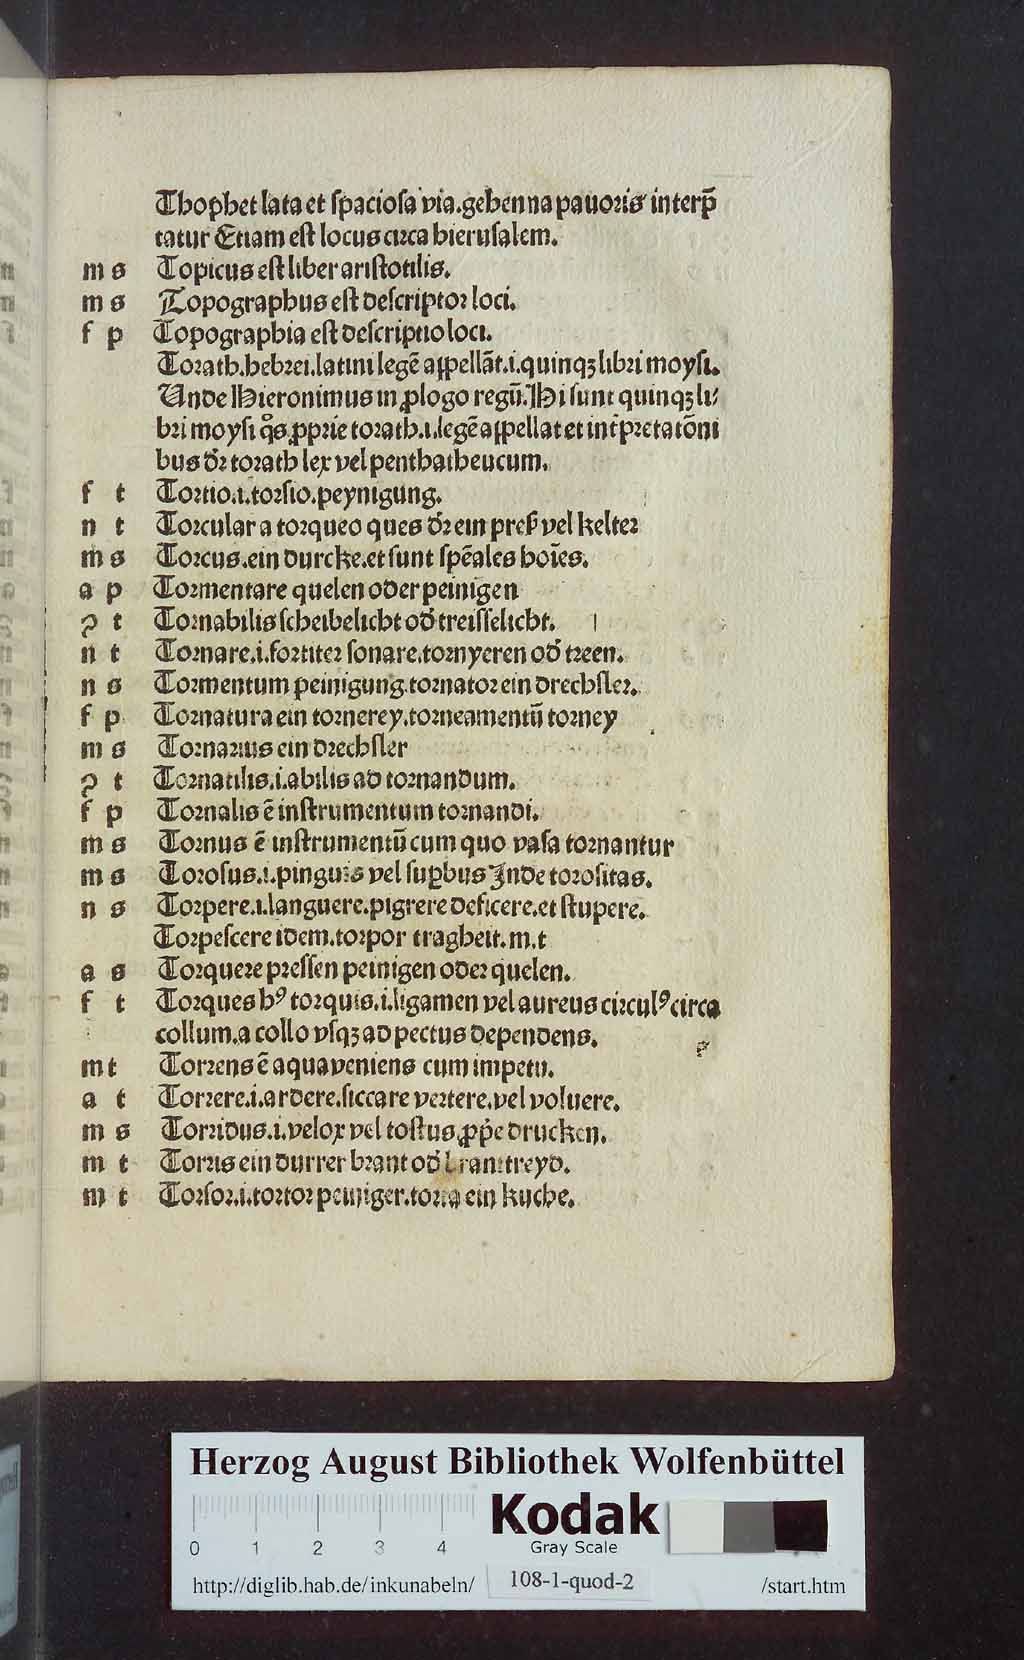 Thophet lata et ſpacioſa via.gehenna pauoris interp̄
tatur Etiam eſt locus circa hieruſalem.
m s Topicus eſt liber ariſtotilis.
m s Topographus eſt deſcriptor loci.
f p Topographia eſt deſcriptio loci.
Torath.hebrei.latini legē appellāt.i.quinqꝫ libri moyſi.
Unde Hieronimus in ꝓlogo regū.Hi ſunt quinqꝫ li⸗
bri moyſi q̊s ꝓprie torath.i.legē appellat et int̓pretatōni
bus dr̓ torath lex vel penthatheucum.
f t Tortio.i.torſio.peynigung.
n t Torcular a torqueo ques dr̓ ein preſſ vel kelter
m s Torcus.ein durcke.et ſunt ſpēales hoīes.
a p Tormentare quelen oder peinigen
ꝯ t Tornabilis ſcheibelicht od̓ treiſſelicht.
n t Tornare.i.fortiter ſonare.tornyeren od̓ treen.
n s Tormentum peinigung.tornator ein drechſler.
f p Tornatura ein tornerey.torneamentū torney
m s Tornarius ein drechſler
ꝯ t Tornatilis.i.abilis ad tornandum.
f p Tornalis ē inſtrumentum tornandi.
m s Tornus ē inſtrumentū cum quo vaſa tornantur
m s Toroſus.i.pinguis vel ſuꝑbus Inde toroſitas.
n s Torpere.i.languere.pigrere deficere.et ſtupere.
Torpeſcere idem.torpor tragheit.m.t
a s Torquere preſſen peinigen oder quelen.
f t Torques hꝰ torquis.i.ligamen vel aureus circulꝰ circa
collum.a collo vſqꝫ ad pectus dependens.
m t Torrens ē aqua veniens cum impetu.
a t Torrere.i.ardere.ſiccare vertere.vel voluere.
m s Torridus.i.velox vel toſtus ꝓṗe drucken.
m t Torris ein durrer brant od̓ brantreyd.
m t Torſor.i.tortor peiniger.torta ein kuche.
Herzog August Bibliothek Wolfenbüttel
0 1 2 3 4
Kodak
Gray Scale
http://diglib.hab.de/inkunabeln/ 108-1-quod-2 /start.htm